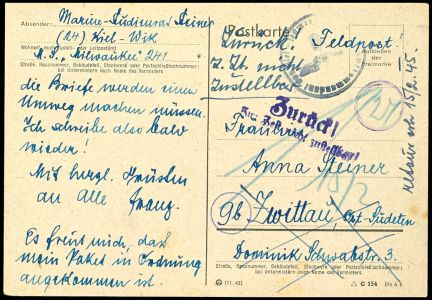 Absender:
Marine-
Steiner
(24) Kiel-Wik
Wohnort, auch Zustell- oder Leitpostamt
M.S. „Milwaukee" 241
Straße, Hausnummer, Gebäudeteil, Stockwerk oder Postschließfachnummer;
bei Untermietern auch Name des Vermieters
die Briefe werden einen
Umweg machen müssen.
Ich schreibe also bald
wieder!
Mit herzl. Grüßen
an alle Franz.
Es freut mich, daß
mein Paket in Ordnung
angekommen ist.
Postkarte
Zurück! Feldpost!
z. Zt. nicht
zustellbar
Aufkleben
der
Freimarke
Zurück!
Zur Zeit nicht zustellbar!
15.2.45.
Anna Steiner
9b Zwittau, Ost-Sudeten
Dominik Schwabstr. 3.
Straße, Hausnummer, Gebäudeteil, Stockwerk oder Postschließfachnummer;
bei Untermietern auch Name des Vermieters
(11.43)
C 154 Din A 6